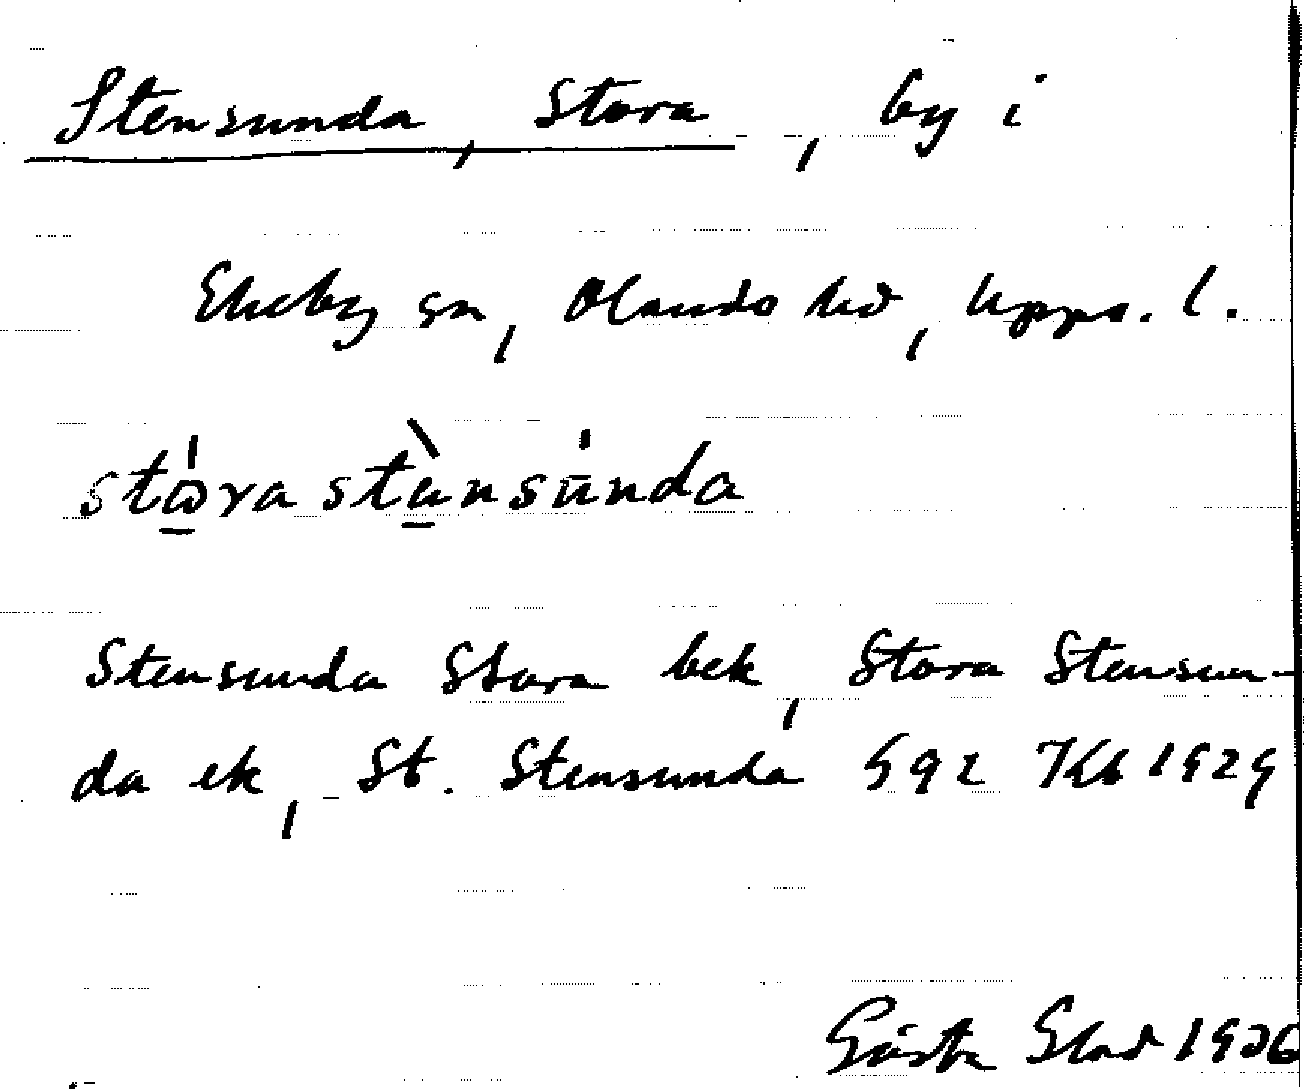 Stensunda, Stora, by i
Ekeby sn, Olands hd, Upps. l.
Stensunda Stora bek, Stora Stensun-
da ek, St. Stensunda G92 Kbl 1929
Gösta Elad 1936